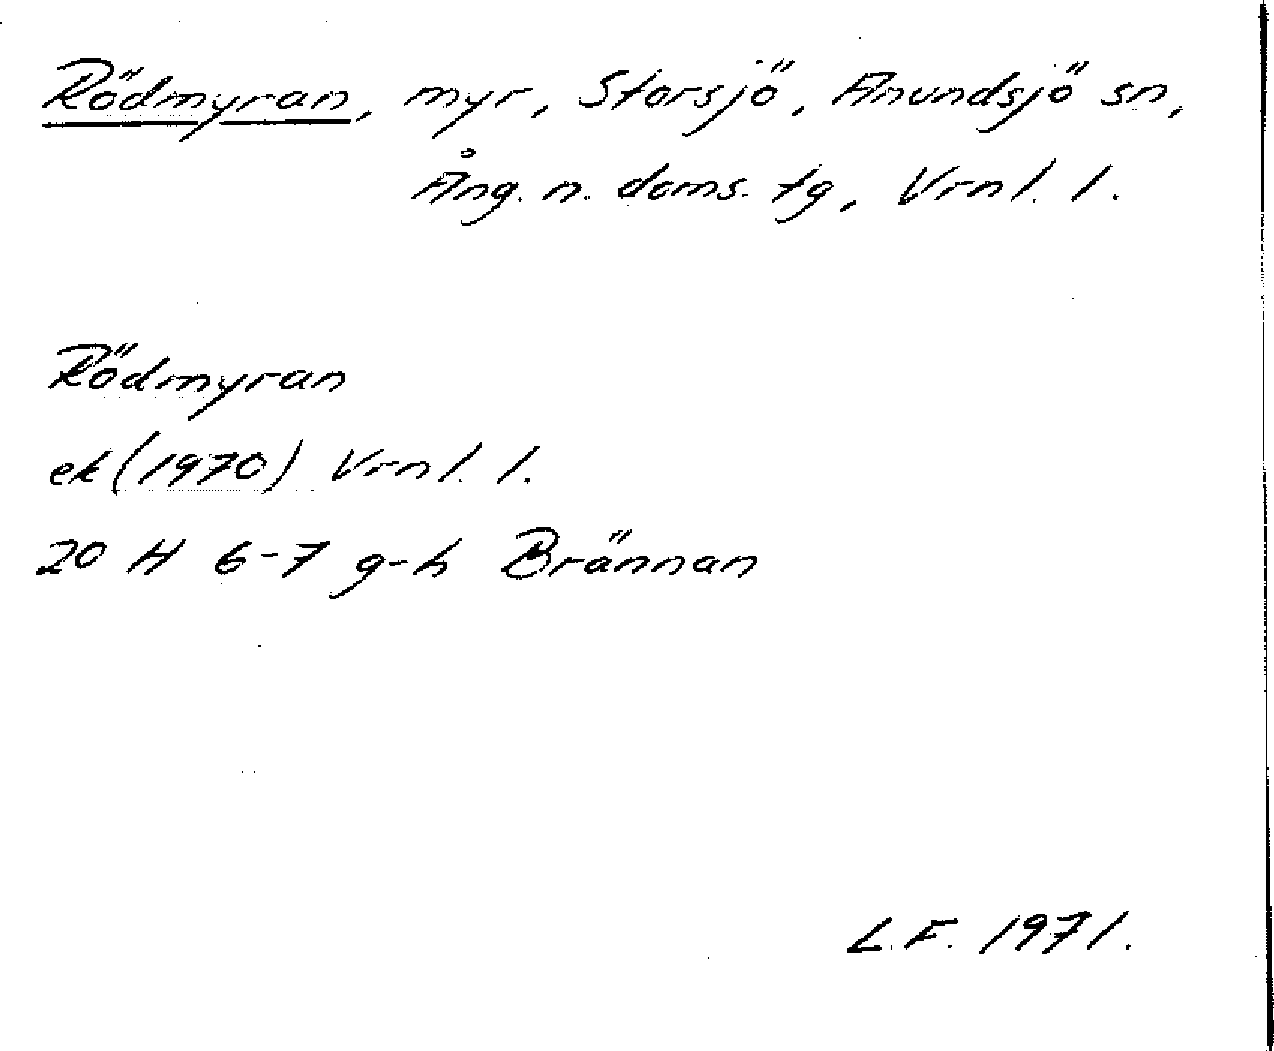 Rödmyran, myr, Storsjö, Anundsjö sn,
Ång. n. doms. tg, Vrnl. l.
Rödmyran
ek (1970) Vrnl. l.
20 H 6-7 g-h Brännan
L.F. 1971.